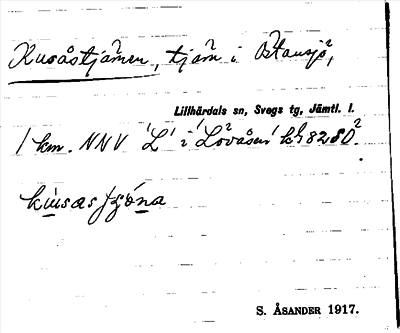 Kusåstjärnen, tjärn i Östansjö,
Lillhärdals sn, Svegs tg, Jämtl. l.
1 km. NNV 'L' i 'Lövåsen' kh 8280².
S. ÅSANDER 1917.